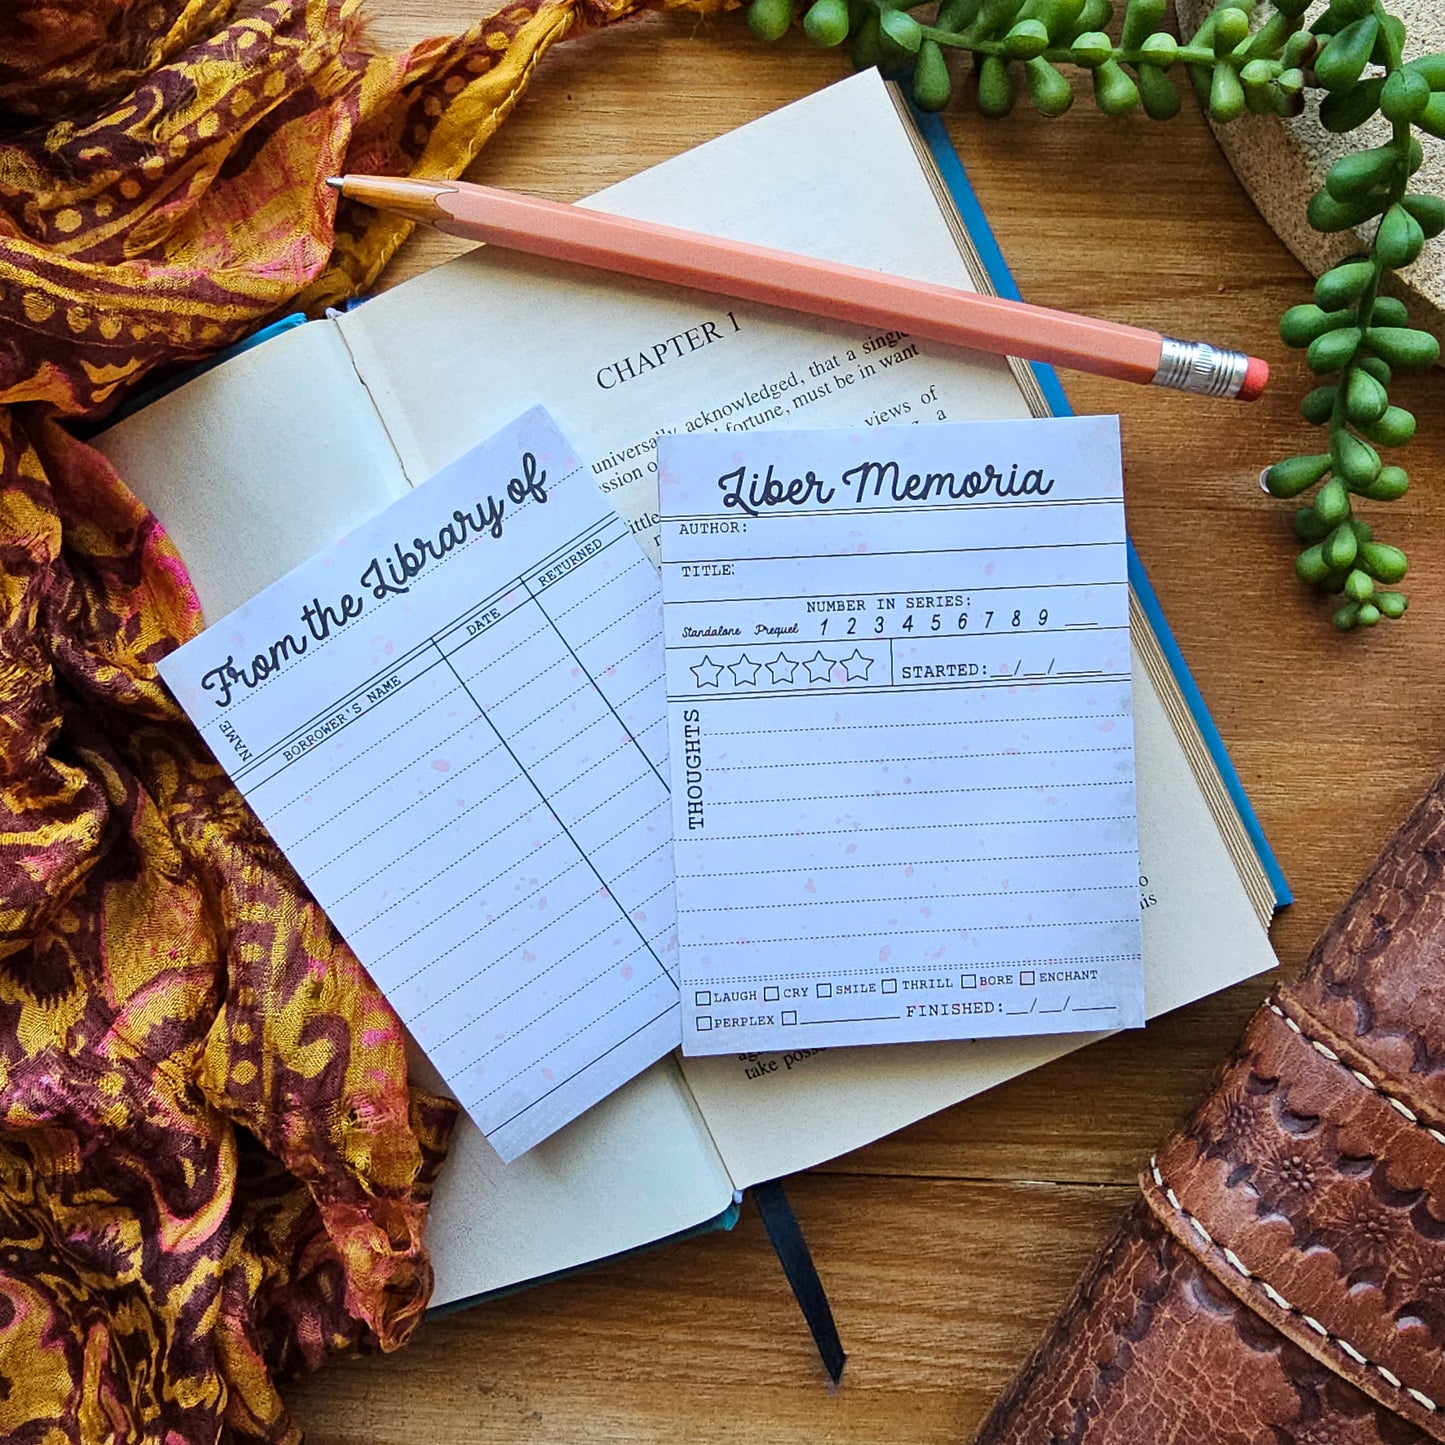 CHAPTER 1
universally acknowledged, that a single
fortune, must be in want
views of
a
take
From the Library of
NAME
BORROWER'S NAME
DATE
RETURNED
Liber Memoria
AUTHOR:
TITLE:
NUMBER IN SERIES:
Standalone Prequel 1 2 3 4 5 6 7 8 9 ___
STARTED:__/__/____
THOUGHTS
LAUGH CRY SMILE THRILL BORE ENCHANT
PERPLEX __________ FINISHED:__/__/____